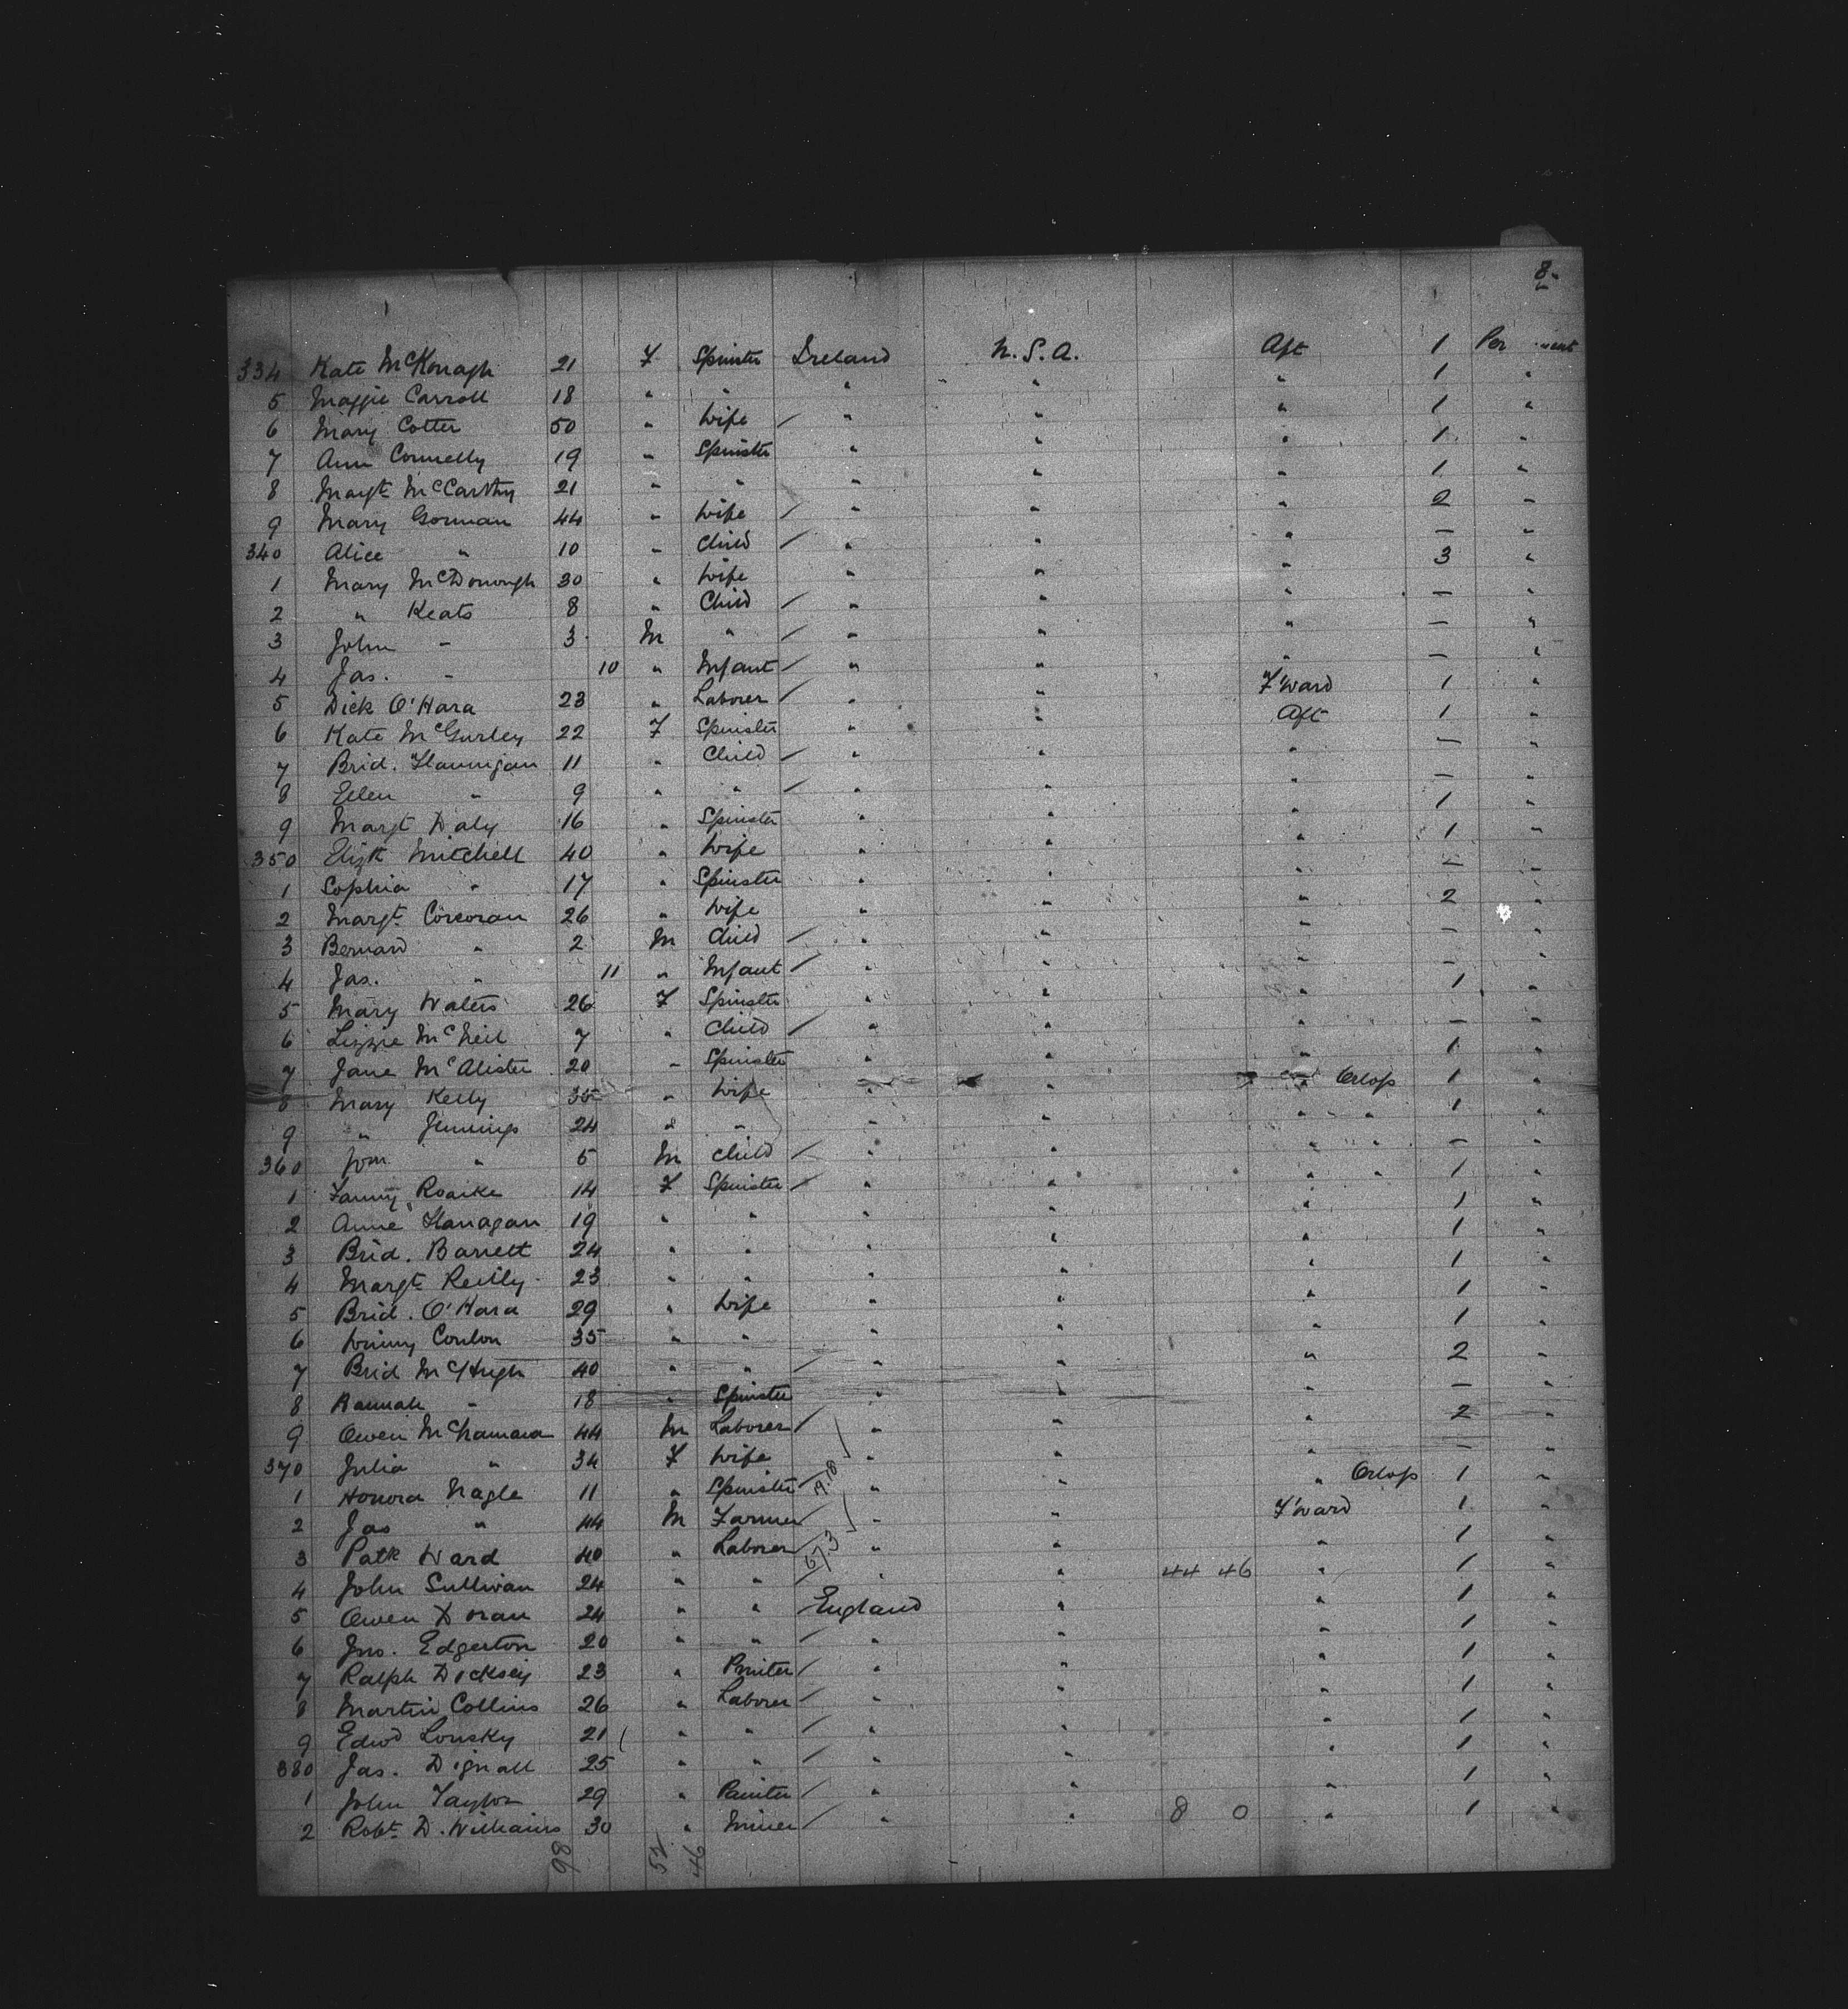 8
334 Kate McKonagh 21 F Spinster Ireland U.S.A. Aft 1 Per ent
5 Maggie Carroll 18 " " " " " 1 "
6 Mary Cotter 50 " Wife / " " " 1 "
7 Ann Connelly 19 " Spinster " " " 1 "
8 Margt. McCarthy 21 " " " " " 1 "
9 Mary Gorman 44 " Wife / " " " 2 "
340 Alice " 10 " Child / " " " — "
1 Mary McDonough 30 " Wife " " " 3 "
2 " Keats 8 " Child / " " " — "
3 John " 3 M " / " " " — "
4 Jas. " 10 " Infant / " " " — "
5 Dick O'Hara 23 " Laborer / " " F'ward 1 "
6 Kate McGurley 22 F Spinster " " Aft 1 "
7 Brid. Flannigan 11 " Child / " " " — "
8 Ellen " 9 " " / " " " — "
9 Margt Daly 16 " Spinster " " " 1 "
350 Elizth Mitchell 40 " Wife " " " 1 "
1 Sophia " 17 " Spinster " " " — "
2 Margt. Corcoran 26 " Wife " " " 2 "
3 Bernard " 2 M Child / " " " — "
4 Jas. " 11 " Infant / " " " — "
5 Mary Waters 26 F Spinster " " " 1 "
6 Lizzie McNeil 7 " Child / " " " — "
7 Jane McAlister 20 " Spinster " " " 1 "
8 Mary Kelly 35 " Wife " " " Orlop 1 "
9 " Jennings 24 " " " " " " 1 "
360 " 5 M Child / " " " " — "
1 Fanny Roaike 14 F Spinster / " " " " 1 "
2 Anne Flanagan 19 " " " " " 1 "
3 Brid. Barrett 24 " " " " " 1 "
4 Margt Reilly 23 " " " " " 1 "
5 Brid. O'Hara 29 " Wife " " " 1 "
6 Winny Conlon 35 " " " " " 1 "
7 Brid McHugh 40 " " / " " " 2 "
8 Hannah " 18 " Spinster " " " — "
9 Owen McNamara 44 M Laborer / " " " 2 "
370 Julia " 34 F Wife " " " — "
1 Honora Nagle 11 " Spinster / " " " Orlop 1 "
2 Jas " 44 M Farmer / " " F'ward 1 "
3 Patk Ward 40 " Laborer / 67.3 " " " 1 "
4 John Sullivan 24 " " / " " 44 46 " 1 "
5 Owen Doran 24 " " / England " " 1 "
6 Jno. Edgerton 20 " " / " " " 1 "
7 Ralph Dicksey 23 " Printer / " " " 1 "
8 Martin Collins 26 " Laborer / " " " 1 "
9 Edwd Lonsky 21 " " / " " " 1 "
380 Jas. Dignall 25 " " / " " " 1 "
1 John Taylor 29 " Painter / " " " 1 "
2 Robt. D. Williams 30 " Miner / " " 8 0 " 1 "
98 52 46